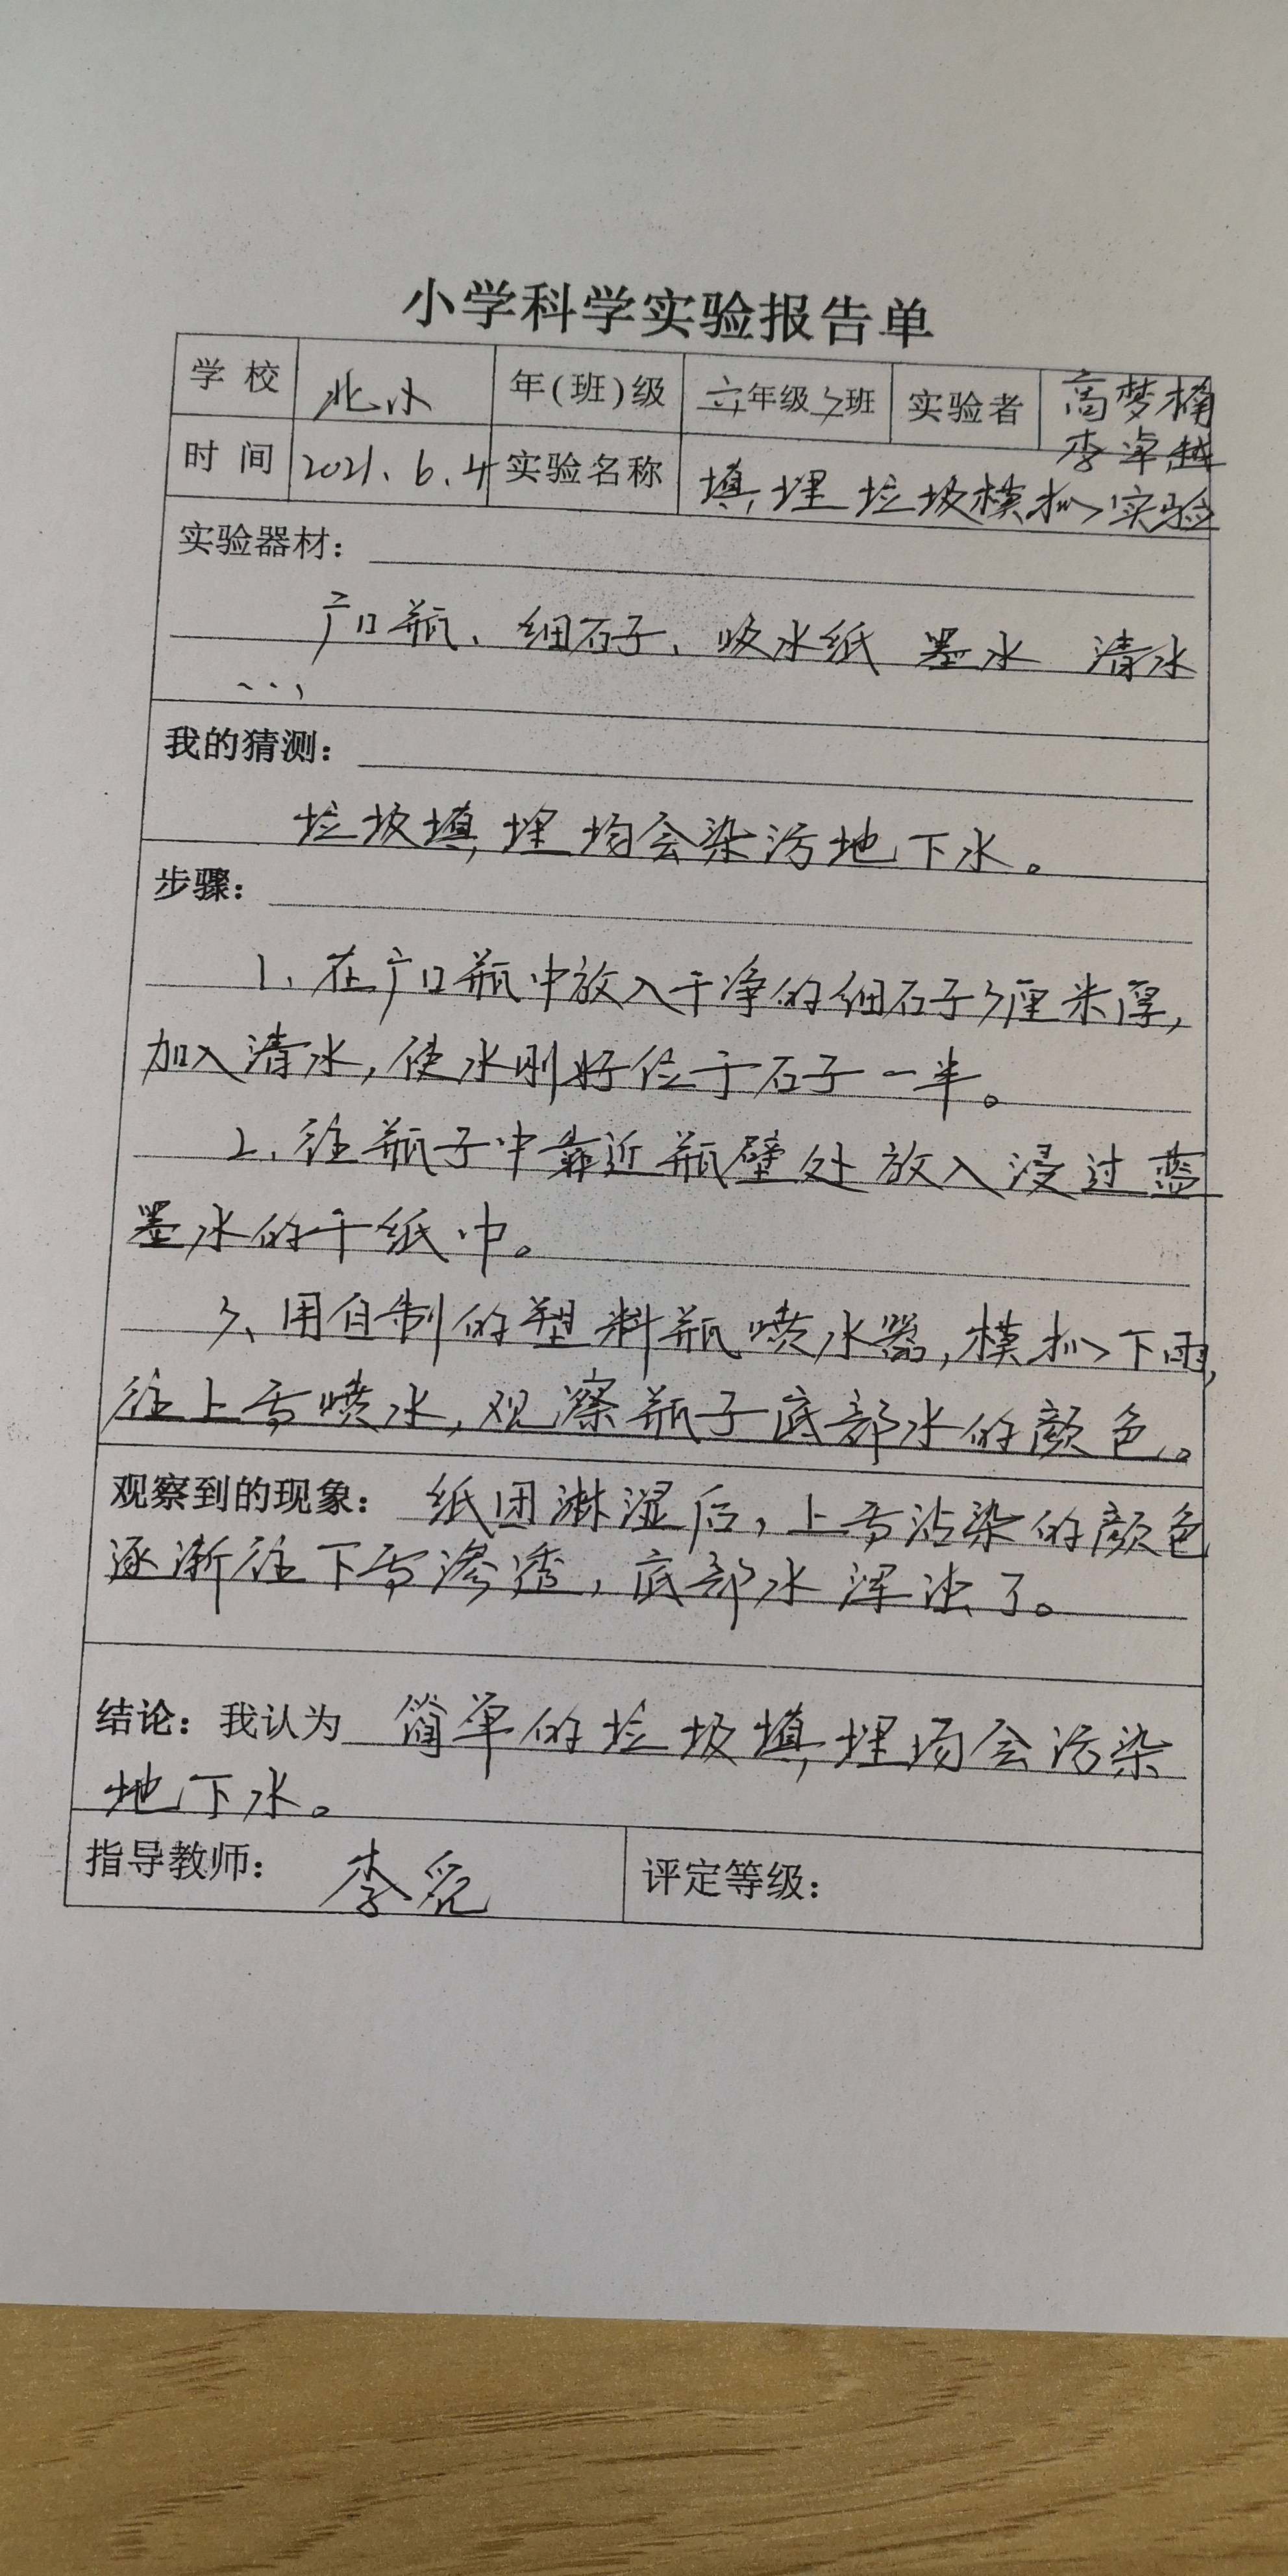 小学科学实验报告单
学校 北小 年(班)级 六年级3班 实验者 高梦楠
李卓越
时间 2021.6.4 实验名称 填埋垃圾模拟实验
实验器材：
广口瓶、细石子、吸水纸 墨水 清水
…
我的猜测：
垃圾填埋场会染污地下水。
步骤：
1、在广口瓶中放入干净的细石子3厘米厚，
加入清水，使水刚好位于石子一半。
2、往瓶子中靠近瓶壁处放入浸过蓝
墨水的干纸巾。
3、用自制的塑料瓶喷水器，模拟下雨，
往上面喷水，观察瓶子底部水的颜色。
观察到的现象：纸团淋湿后，上面沾染的颜色
逐渐往下面渗透，底部水浑浊了。
结论：我认为 简单的垃圾填埋场会污染
地下水。
指导教师： 李 评定等级：